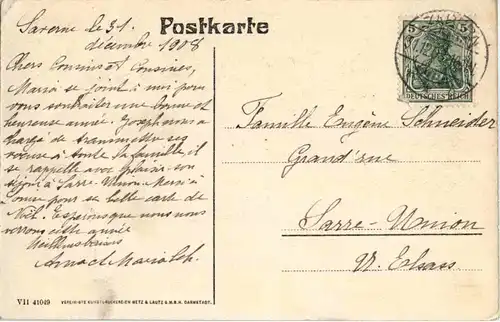 Postkarte
Saverne le 31.
décembre 1908
Chers Cousins et Cousines,
Maria se joint à moi pour
vous souhaiter une bonne et
heureuse année. Joseph nous a
chargé de transmettre ses
voeux à toute la famille, il
se rappelle avec plaisir son
séjour à Sarre-Union. Merci à
pour sa belle carte de
Noël. Espérons que nous vous
verrons cette année
Anna et Maria
5 5
DEUTSCHES REICH
Famille Eugène Schneider
Grand'rue
Sarre-Union
U. Elsass
VII 41049 VEREINIGTE KUNSTDRUCKEREIEN METZ & LAUTZ G.M.B.H. DARMSTADT.